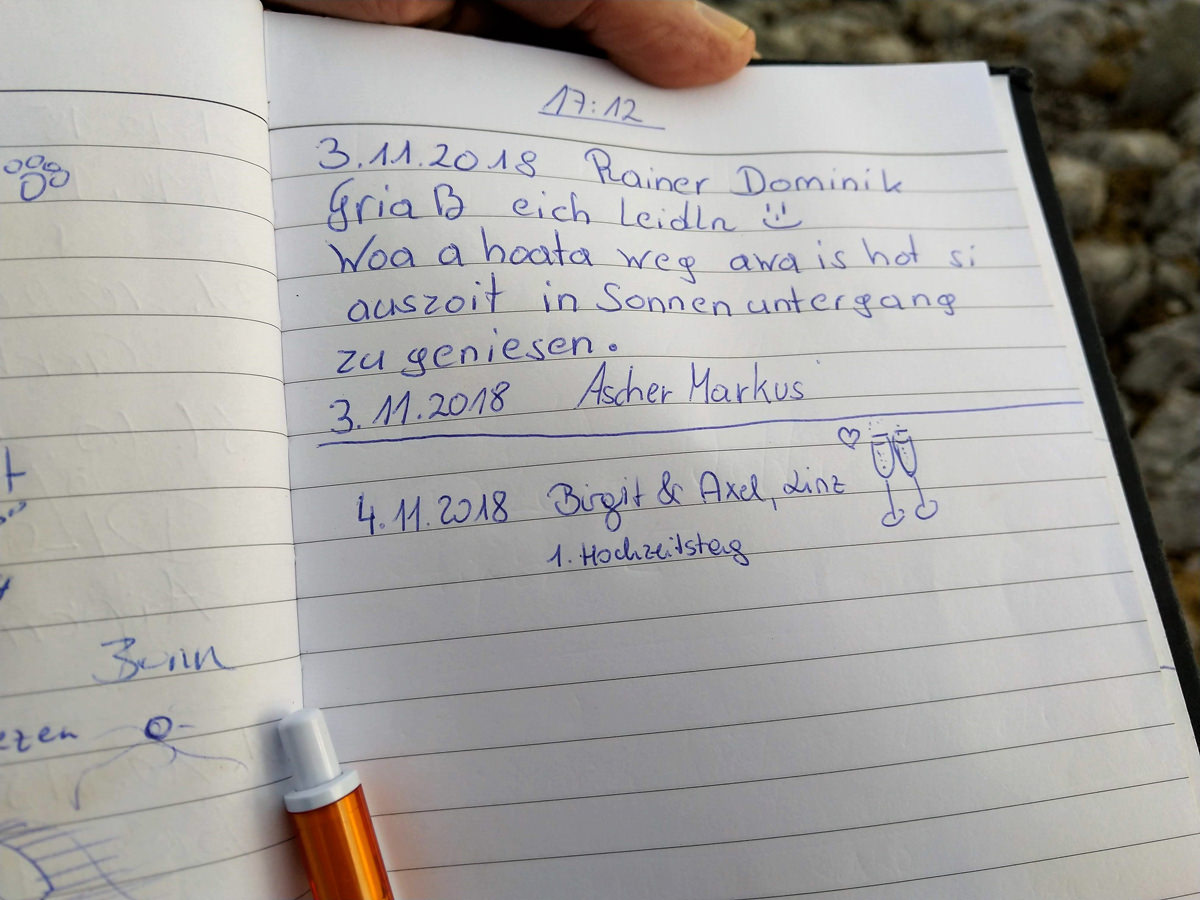 17:12
3.11.2018 Rainer Dominik
Griaß eich Leidln
Woa a hoata weg awa is hot si
auszoit in Sonnenuntergang
zu geniesen.
3.11.2018 Ascher Markus
4.11.2018 Birgit & Axel, Linz
1. Hochzeitstag